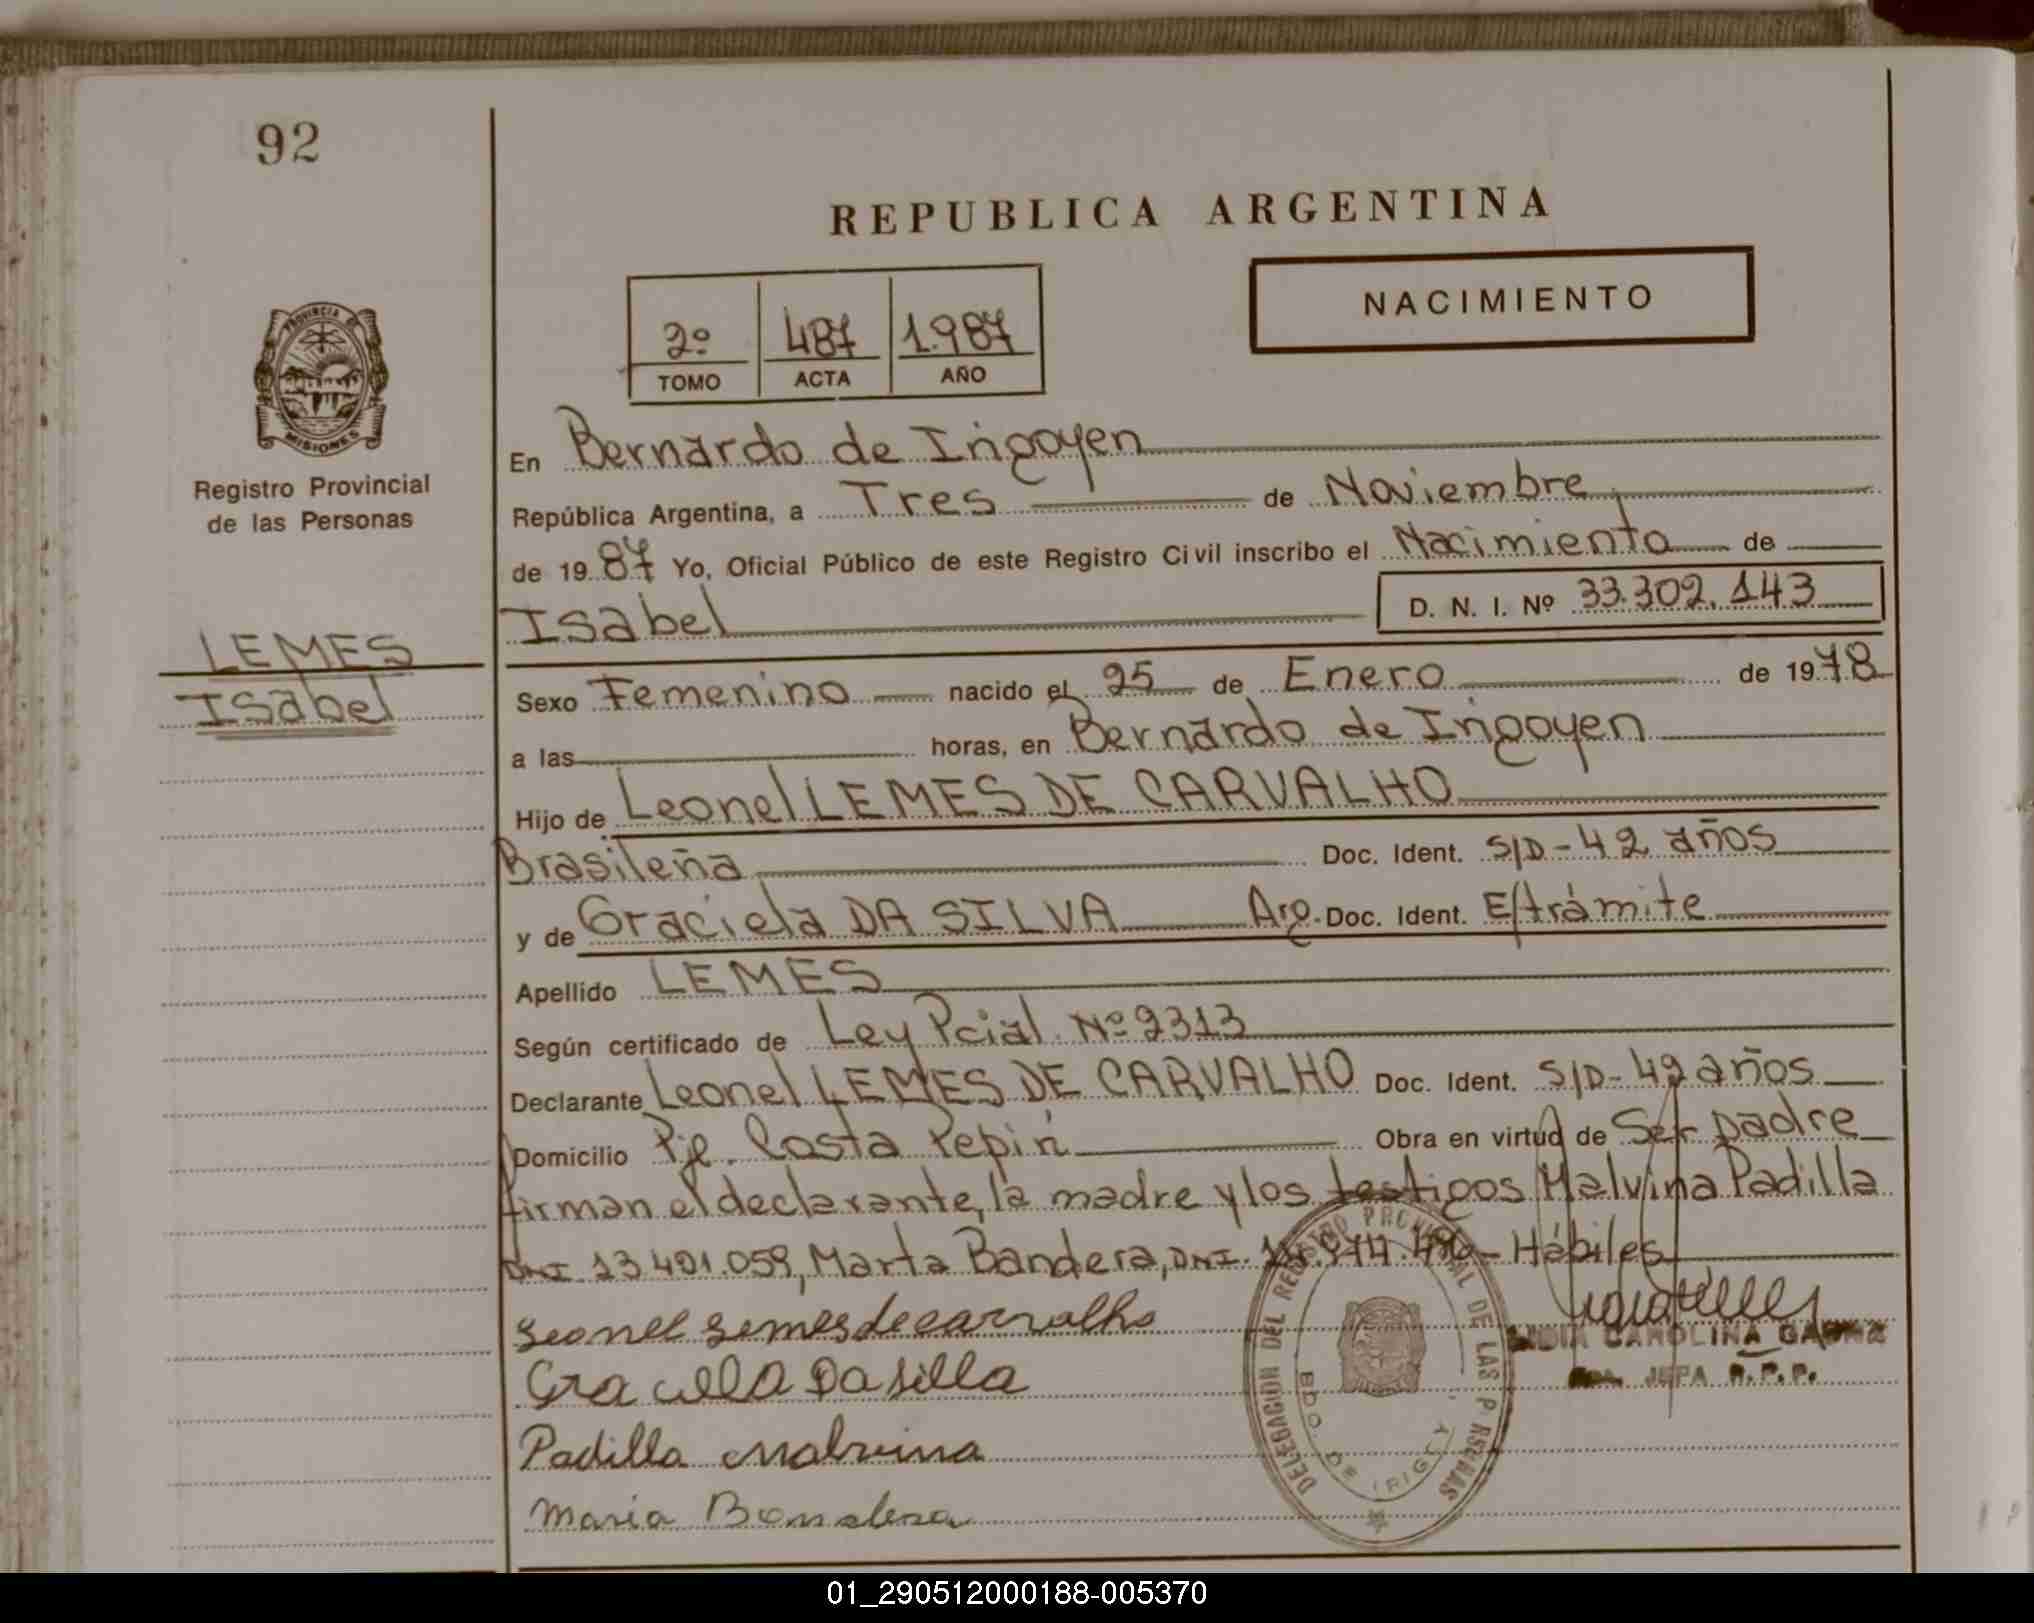 92
REPUBLICA ARGENTINA
NACIMIENTO
2º 487 1.987
TOMO ACTA AÑO
PROVINCIA DE
MISIONES
Registro Provincial
de las Personas
LEMES
Isabel
En Bernardo de Irigoyen
República Argentina, a Tres de Noviembre
de 1987 Yo, Oficial Público de este Registro Civil inscribo el Nacimiento de
Isabel D. N. I. Nº 33.302.143
Sexo Femenino nacido el 25 de Enero de 1978
a las horas, en Bernardo de Irigoyen
Hijo de Leonel LEMES DE CARVALHO
Brasileña Doc. Ident. S/D - 42 años
y de Graciela DA SILVA Arg. Doc. Ident. E/trámite
Apellido LEMES
Según certificado de Ley Pcial. Nº 2313
Declarante Leonel LEMES DE CARVALHO Doc. Ident. S/D - 42 años
Domicilio Pje. Costa Pepirí Obra en virtud de Ser padre
firman el declarante, la madre y los testigos Malvina Padilla
DNI 13.491.059, Marta Bandera, DNI. - Hábiles
Leonel Lemes de carvalho
Graciela Da silva
Padilla Malvina
Maria Bandera
DELEGACION DEL REGISTRO PROVINCIAL DE LAS P RSONAS
BDO. DE IRIGOY
CAROLINA
JEFA R.P.P.
01_290512000188-005370